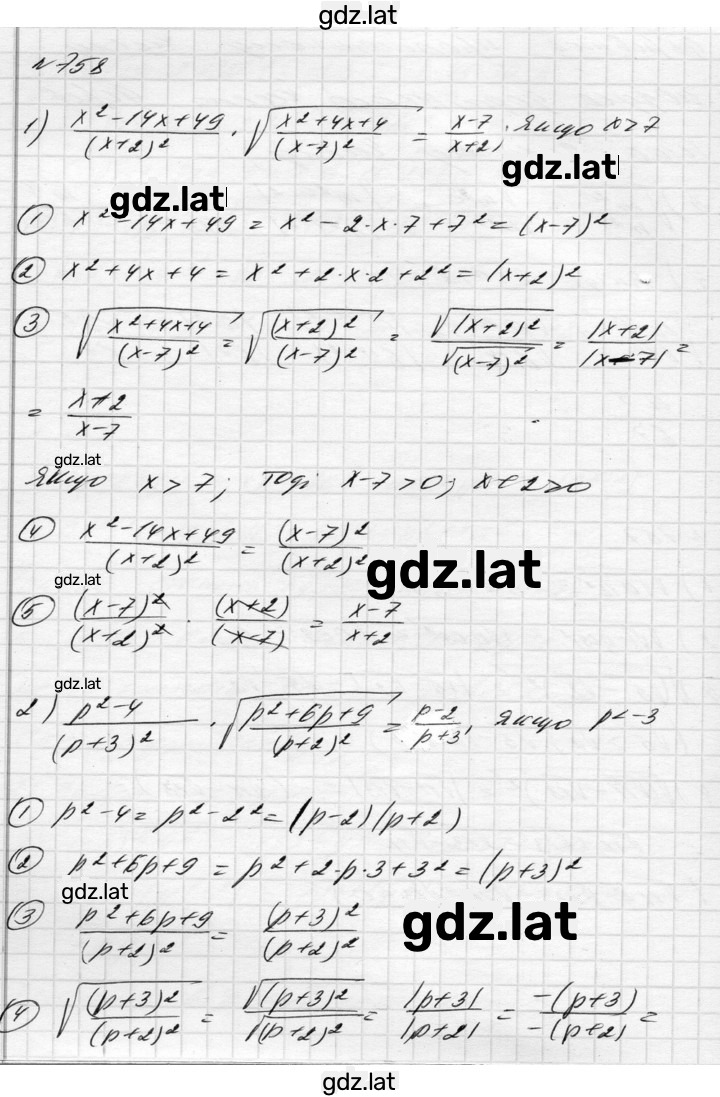 gdz.lat
№758
1) (x²-14x+49)/(x+2)² · √((x²+4x+4)/(x-7)²) = (x-7)/(x+2), якщо x>7
gdz.lat
gdz.lat
① x²-14x+49 = x²-2·x·7+7² = (x-7)²
② x²+4x+4 = x²+2·x·2+2² = (x+2)²
③ √((x²+4x+4)/(x-7)²) = √((x+2)²/(x-7)²) = √(x+2)²/√(x-7)² = |x+2|/|x-7| =
= (x+2)/(x-7)
gdz.lat
якщо x>7; тоді x-7>0; x+2>0
④ (x²-14x+49)/(x+2)² = (x-7)²/(x+2)²
gdz.lat
gdz.lat
⑤ (x-7)²/(x+2)² · (x+2)/(x-7) = (x-7)/(x+2)
gdz.lat
2) (p²-4)/(p+3)² · √((p²+6p+9)/(p+2)²) = (p-2)/(p+3), якщо p<-3
① p²-4 = p²-2² = (p-2)(p+2)
② p²+6p+9 = p²+2·p·3+3² = (p+3)²
gdz.lat
③ (p²+6p+9)/(p+2)² = (p+3)²/(p+2)²
gdz.lat
④ √((p+3)²/(p+2)²) = √(p+3)²/√(p+2)² = |p+3|/|p+2| = -(p+3)/-(p+2) =
gdz.lat